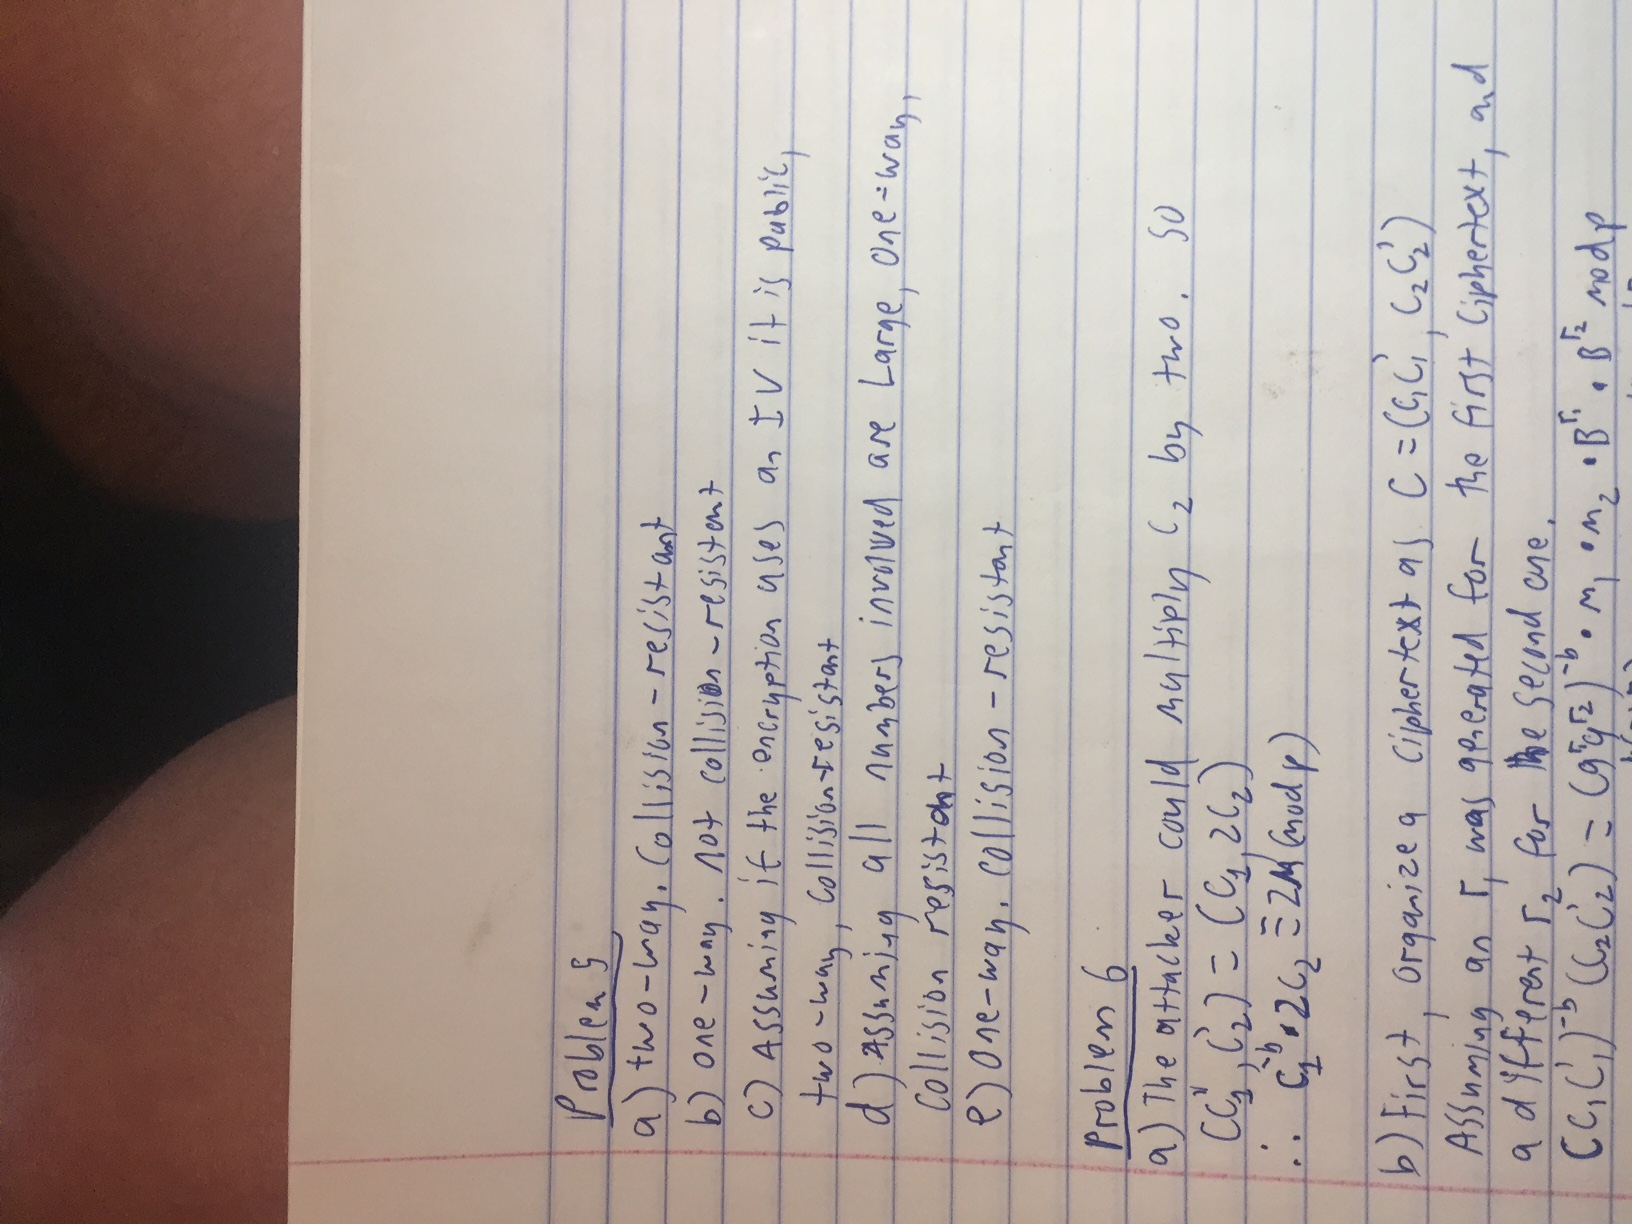 Problem 5
a) two-way. Collision-resistant
b) one-way. not collision-resistent
c) Assuming if the encryption uses an IV it is public,
two-way, collision-resistant
d) Assuming all numbers involved are Large, one-way,
Collision resistant
e) One-way. collision-resistant
Problem 6
a) The attacker could multiply C₂ by two. So
(C₁', C₂') = (C₁, 2C₂)
∴ C₁⁻ᵇ • 2C₂ ≡ 2M (mod p)
b) First, organize a ciphertext as C = (C₁C₁', C₂C₂')
Assuming an r₁ was generated for the first ciphertext, and
a different r₂ for the second one.
(C₁C₁')⁻ᵇ (C₂C₂') = (g^r₁ g^r₂)⁻ᵇ • m₁ • m₂ • B^r₁ • B^r₂ mod p